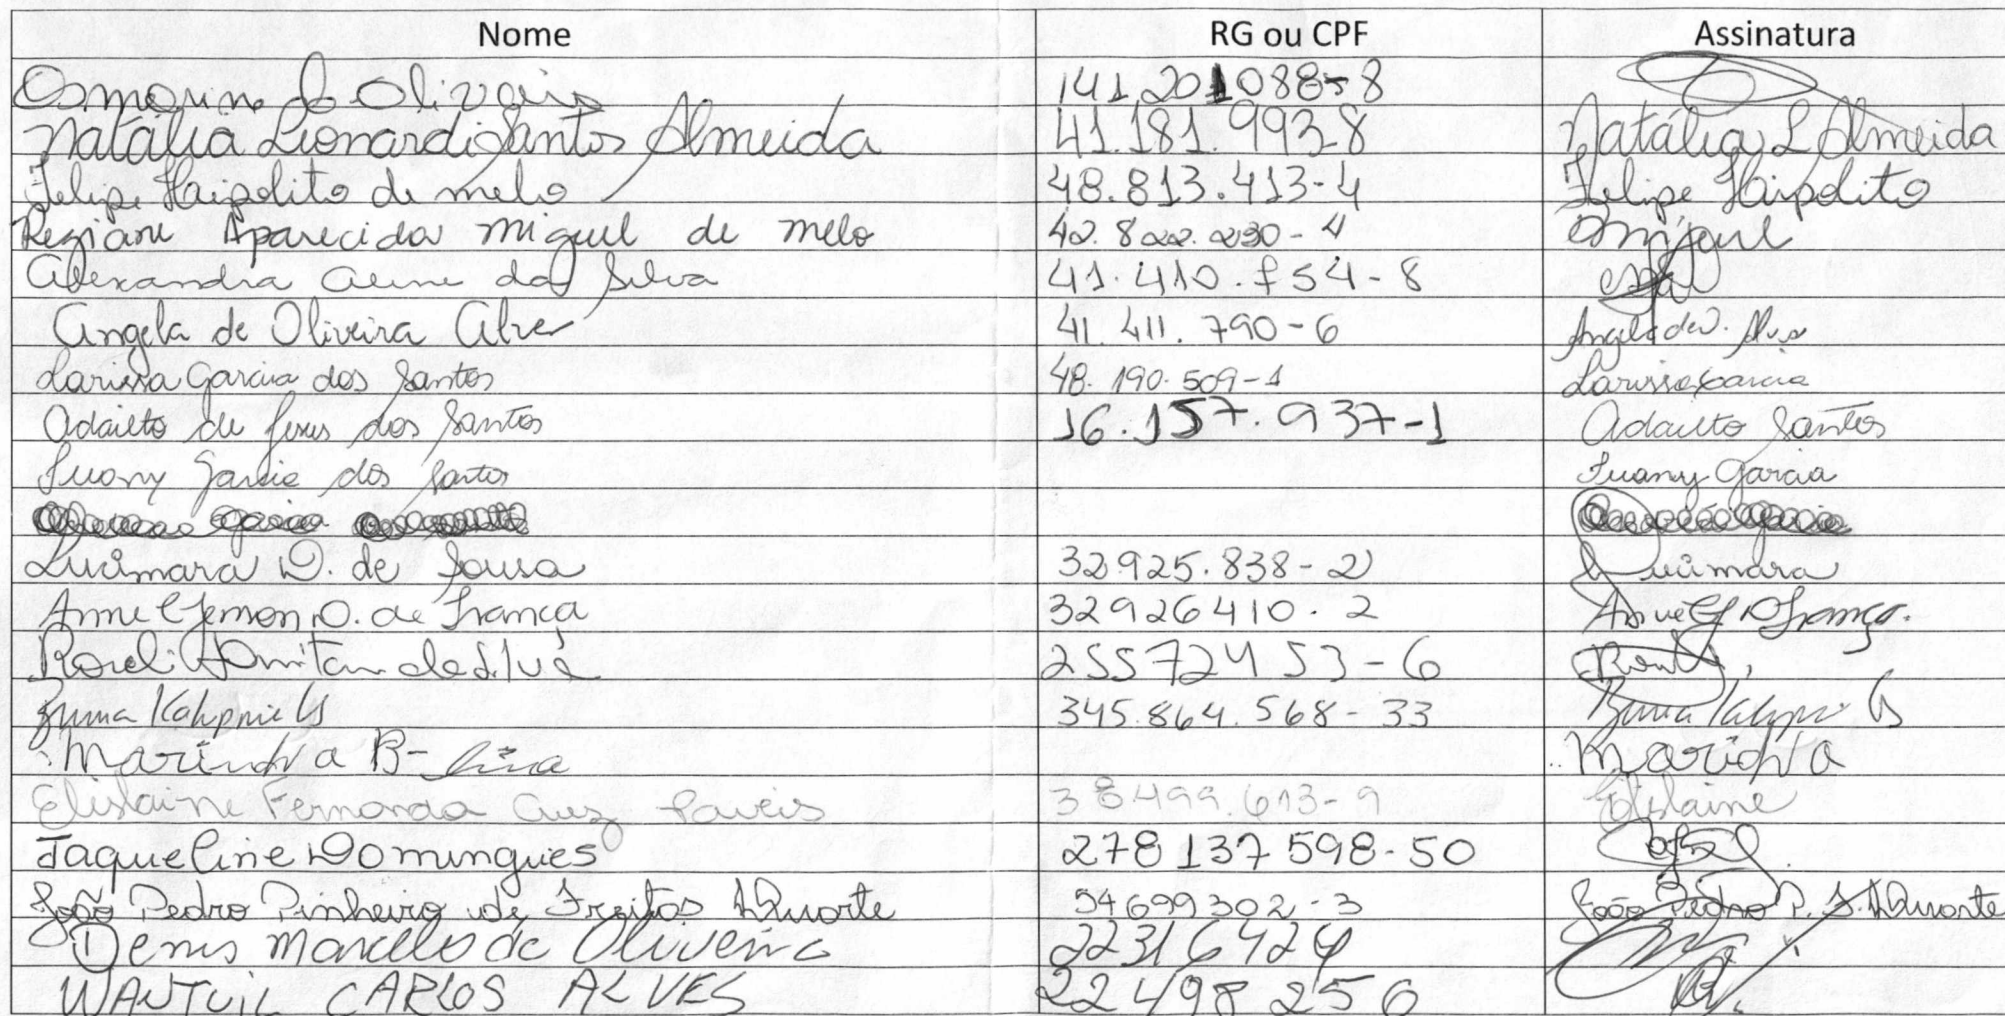 Nome RG ou CPF Assinatura
de Oliveira 141.201088-8
Natália Lionardi Santos Almeida 41.181.9938 Natália L Almeida
Felipe Haipolito de melo 48.813.413-4 Felipe Haipolito
Regiane Aparecida miguel de melo 42.822.230-4 miguel
Alexandra Aline da Silva 41.410.754-8
Angela de Oliveira Alves 41.411.790-6 Angela de O. Alves
Larissa Garcia dos Santos 48.190.509-1 Larissa Garcia
Adailto de Jesus dos Santos 16.157.937-1 Adailto Santos
Suany Garcia dos Santos Suany Garcia
Lucimara D. de Sousa 32.925.838-2 Lucimara
Anne Gemon D. de França 32926410-2 França.
Roseli da Silva 25572453-6
345.864.568-33
B- Lima
Elislaine Fernanda Cruz 38499.613-9 Elislaine
Jaqueline Domingues 278137598-50
João Pedro Pinheiro de Freitas Duarte 54699302-3 João Pedro P. F. Duarte
Denis Marcello de Oliveira 22316424
WANTUIL CARLOS ALVES 22498256